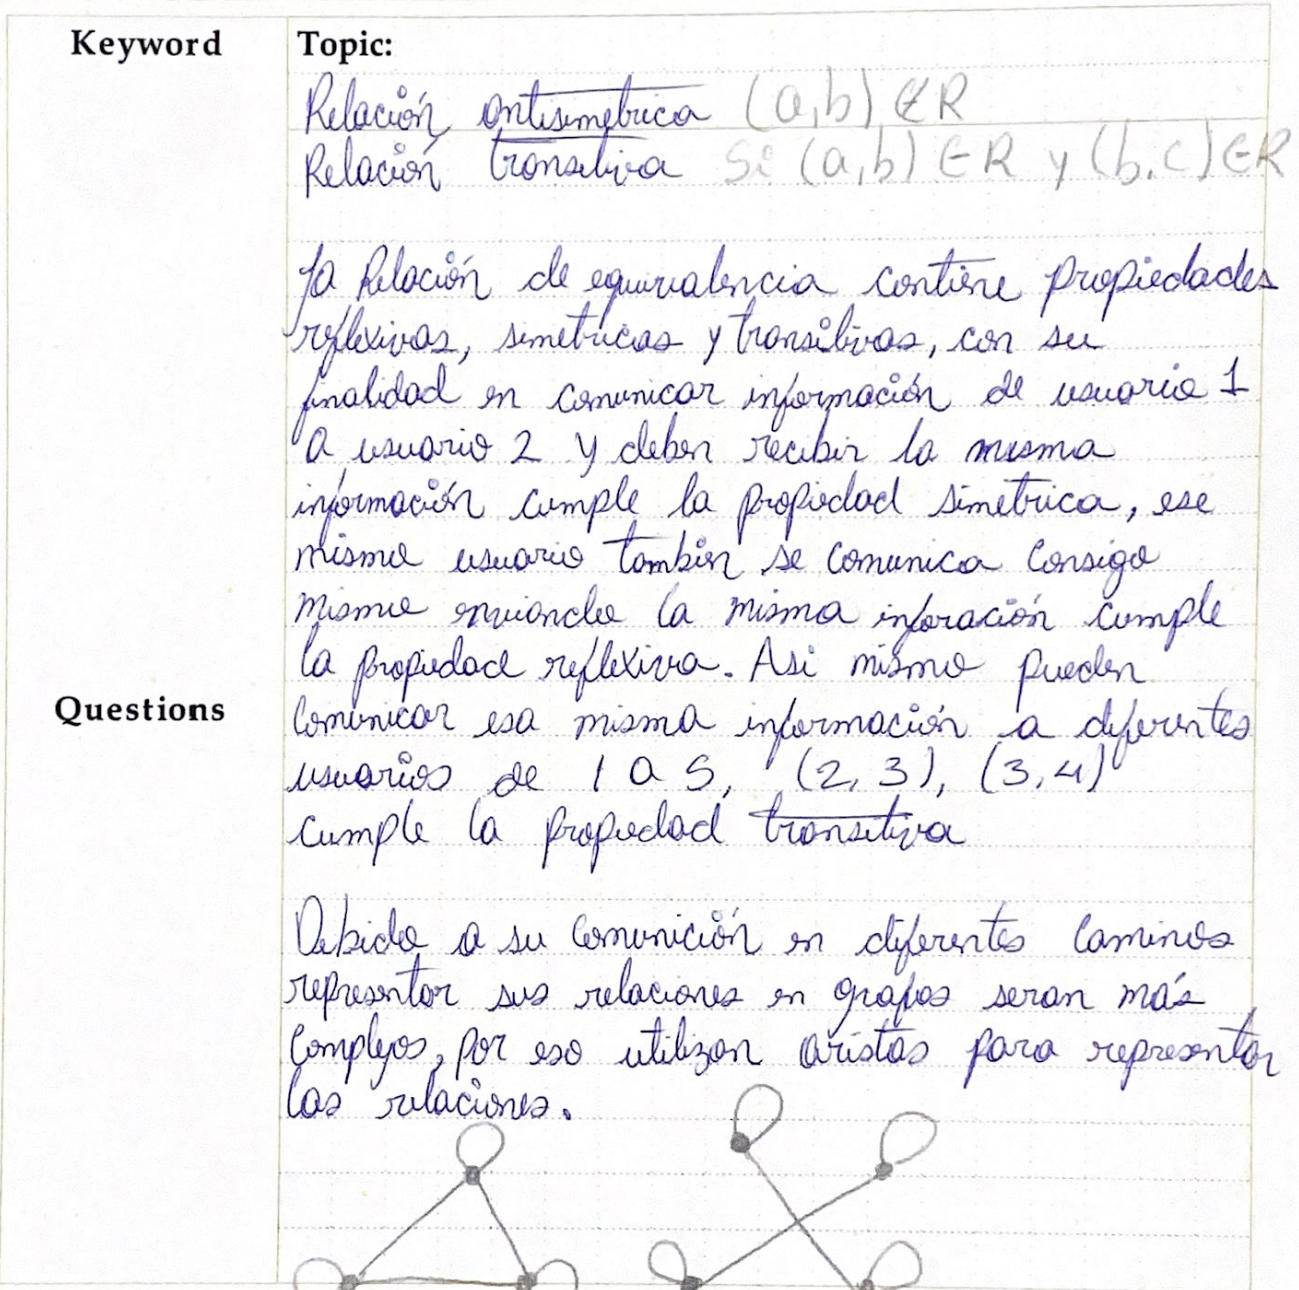 Keyword
Topic:
Relación antisimetrica (a,b) ∉ R
Relación transitiva Si (a,b) ∈ R y (b,c) ∈ R
La Relación de equivalencia contiene propiedades
reflexivas, simetricas y transitivas, con su
finalidad en comunicar información de usuario 1
a usuario 2 y deben recibir la misma
información cumple la propiedad simetrica, ese
mismo usuario tambien se comunica consigo
mismo enviando la misma inforación cumple
la propiedad reflexiva. Asi mismo pueden
Questions
comunicar esa misma información a diferentes
usuarios de 1 a 5, (2,3), (3,4)
cumple la propiedad transitiva
Debido a su comunición en diferentes caminos
representar sus relaciones en grafos seran más
complejos, por eso utilizan aristas para representar
las relaciones.